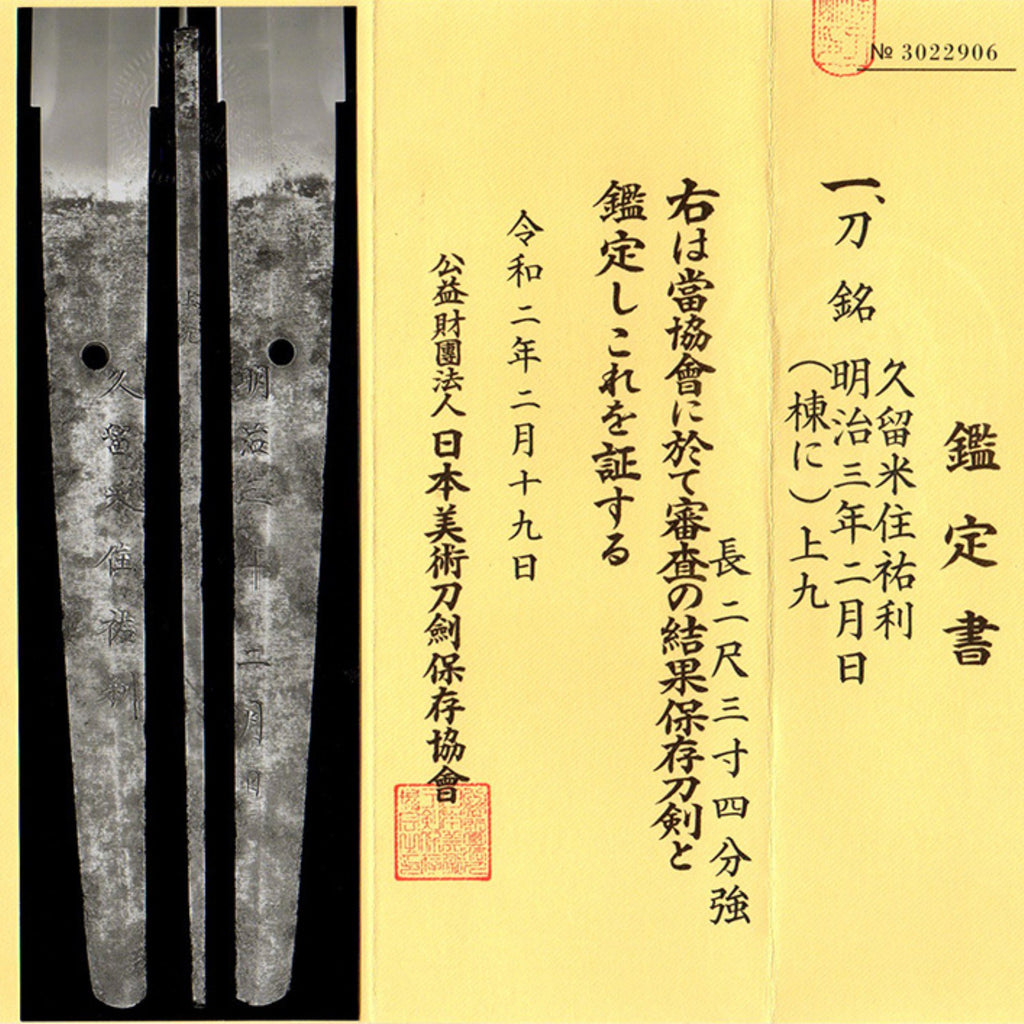 № 3022906
鑑定書
一、刀 銘
久留米住祐利
明治三年二月日
(棟に)上九
長 二尺三寸四分強
右は當協會に於て審査の結果保存刀剣と
鑑定しこれを証する
令和二年二月十九日
公益財團法人 日本美術刀劍保存協會
明治三年二月日
久留米住祐利